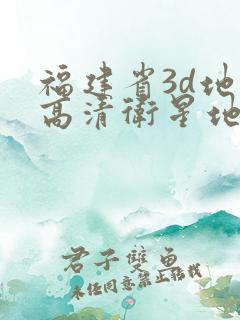 福建省3d地
高清卫星地
君子双鱼
未经同意禁止转载